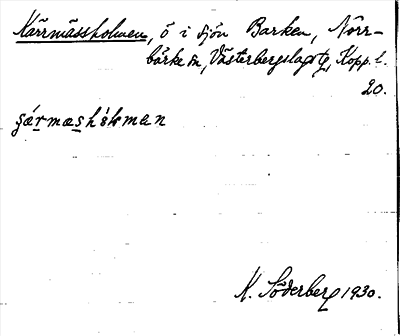 Kärrmässholmen, ö i sjön Barken, Norr-
bärke sn, Västerbergslags tg, Kopp. l.
20.
K. Söderberg 1930.